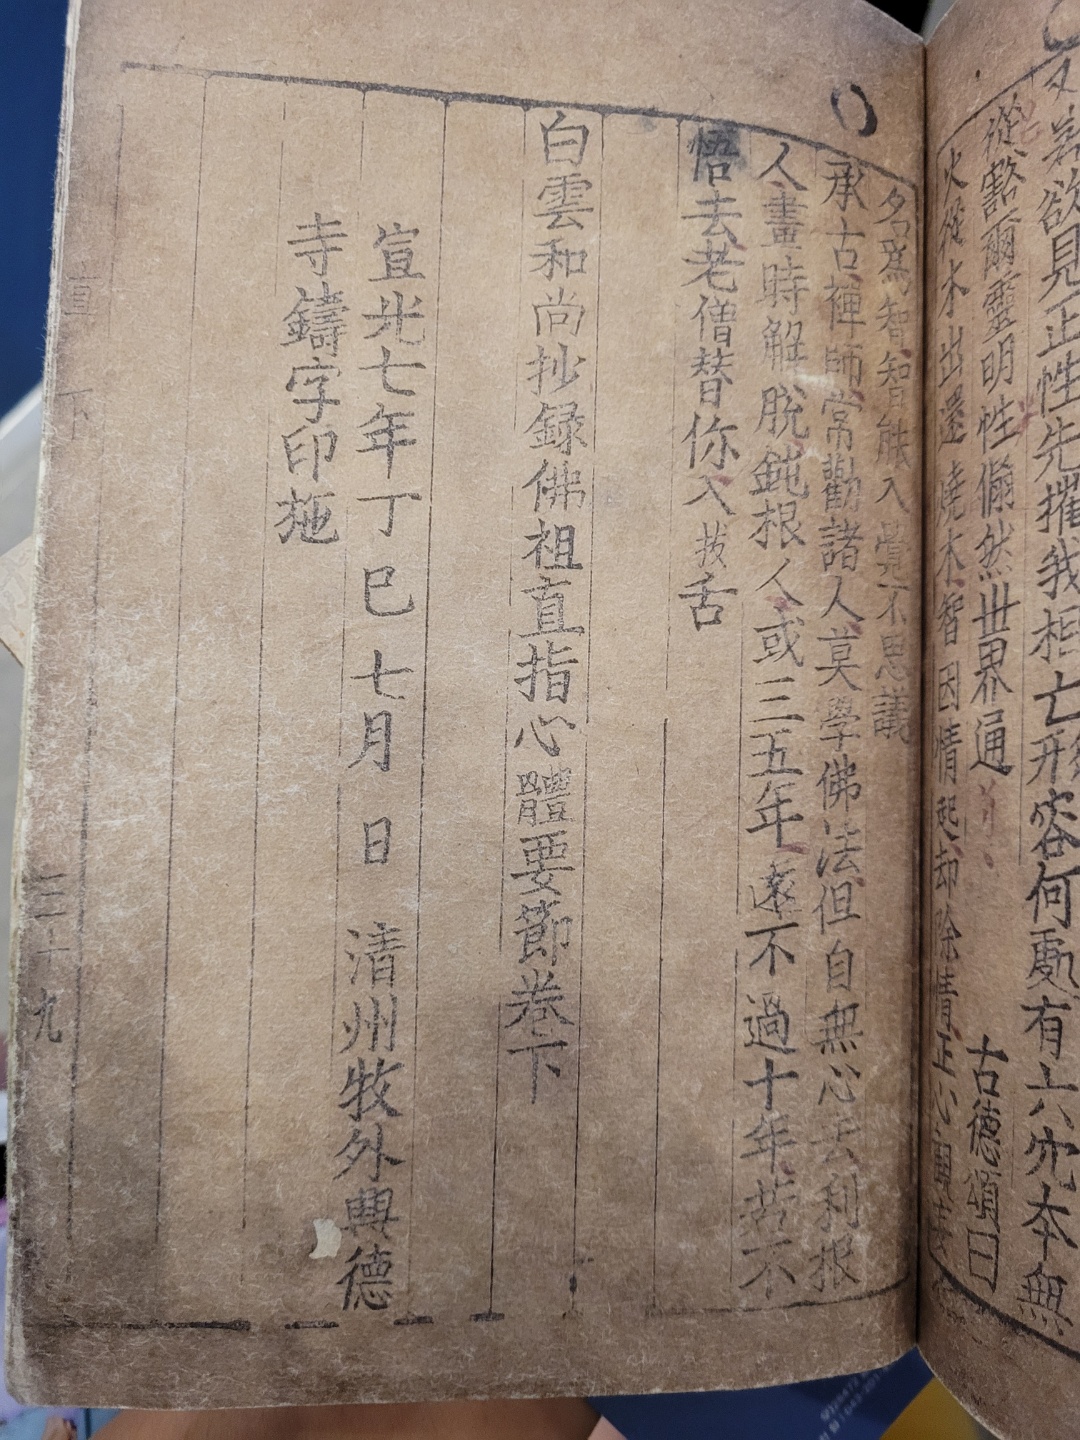 又若欲見正性先摧我相亡形容何處有六穴本無
從豁爾靈明性翛然世界通
古德頌曰
火從木出還燒木智因情起却除情
名爲智智能入覺不思議
承古禪師常勸諸人莫學佛法但自無心去利根
人晝時解脫鈍根人或三五年遠不過十年若不
悟去老僧替你入拔舌
白雲和尚抄錄佛祖直指心體要節卷下
宣光七年丁巳七月 日 清州牧外興德
寺鑄字印施
直 下
三十九